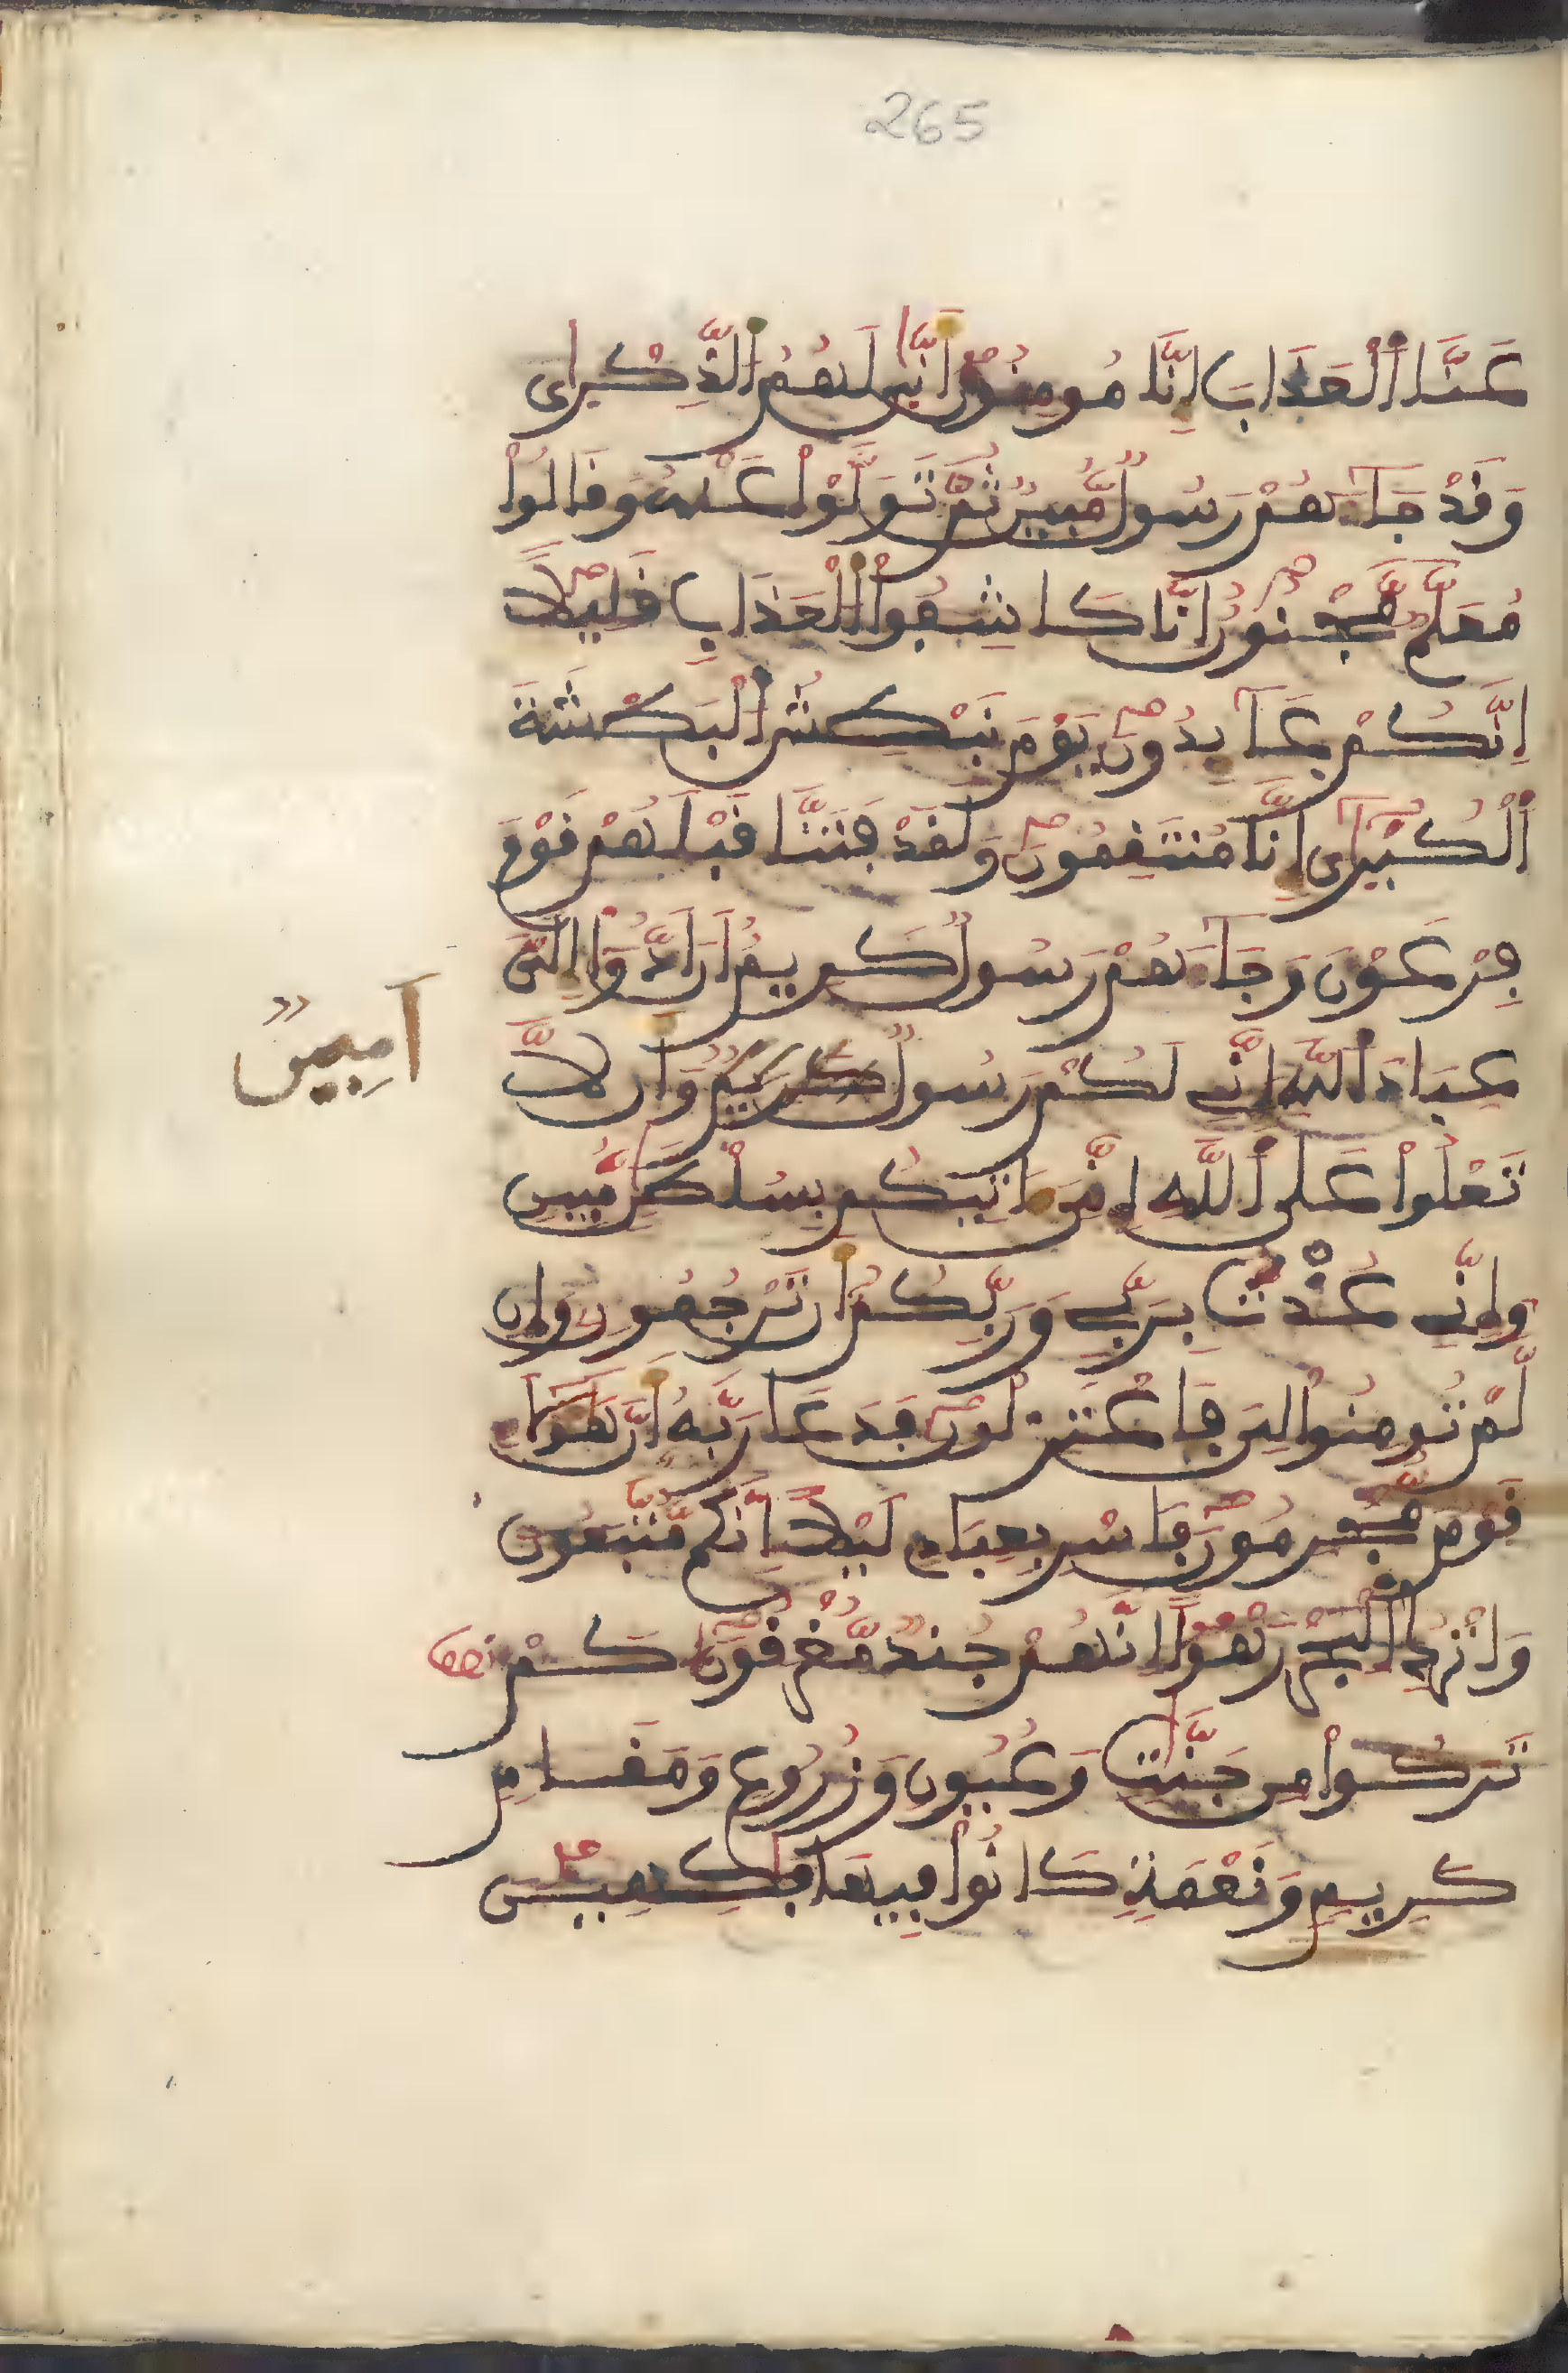 265
عَنَّا الْعَذَابَ إِنَّا مُومِنُونَ أَنَّىٰ لَهُمُ الذِّكْرَىٰ
وَقَدْ جَآءَهُمْ رَسُولٌ مُّبِينٌ ثُمَّ تَوَلَّوْا عَنْهُ وَقَالُوا
مُعَلَّمٌ مَّجْنُونٌ إِنَّا كَاشِفُوا الْعَذَابِ قَلِيلًا
إِنَّكُمْ عَآئِدُونَ يَوْمَ نَبْطِشُ الْبَطْشَةَ
الْكُبْرَىٰ إِنَّا مُنتَقِمُونَ وَلَقَدْ فَتَنَّا قَبْلَهُمْ قَوْمَ
فِرْعَوْنَ وَجَآءَهُمْ رَسُولٌ كَرِيمٌ أَنْ أَدُّوا إِلَيَّ
عِبَادَ اللَّهِ إِنِّي لَكُمْ رَسُولٌ كَرِيمٌ وَأَن لَّا
اَمِينٌ
تَعْلُوا عَلَى اللَّهِ إِنِّيَ ءَاتِيكُم بِسُلْطَٰنٍ مُّبِينٍ
وَإِنِّي عُذْتُ بِرَبِّي وَرَبِّكُمُ أَن تَرْجُمُونِ وَإِن
لَّمْ تُومِنُوا لِيَ فَاعْتَزِلُونِ فَدَعَا رَبَّهُ أَنَّ هَٰؤُلَآءِ
قَوْمٌ مُّجْرِمُونَ فَاسْرِ بِعِبَادِي لَيْلًا إِنَّكُم مُّتَّبَعُونَ
وَاتْرُكِ الْبَحْرَ رَهْوًا إِنَّهُمْ جُندٌ مُّغْرَقُونَ كَمْ نصف
تَرَكُوا مِن جَنَّٰتٍ وَعُيُونٍ وَزُرُوعٍ وَمَقَامٍ
كَرِيمٍ وَنَعْمَةٍ كَانُوا فِيهَا فَٰكِهِينَ